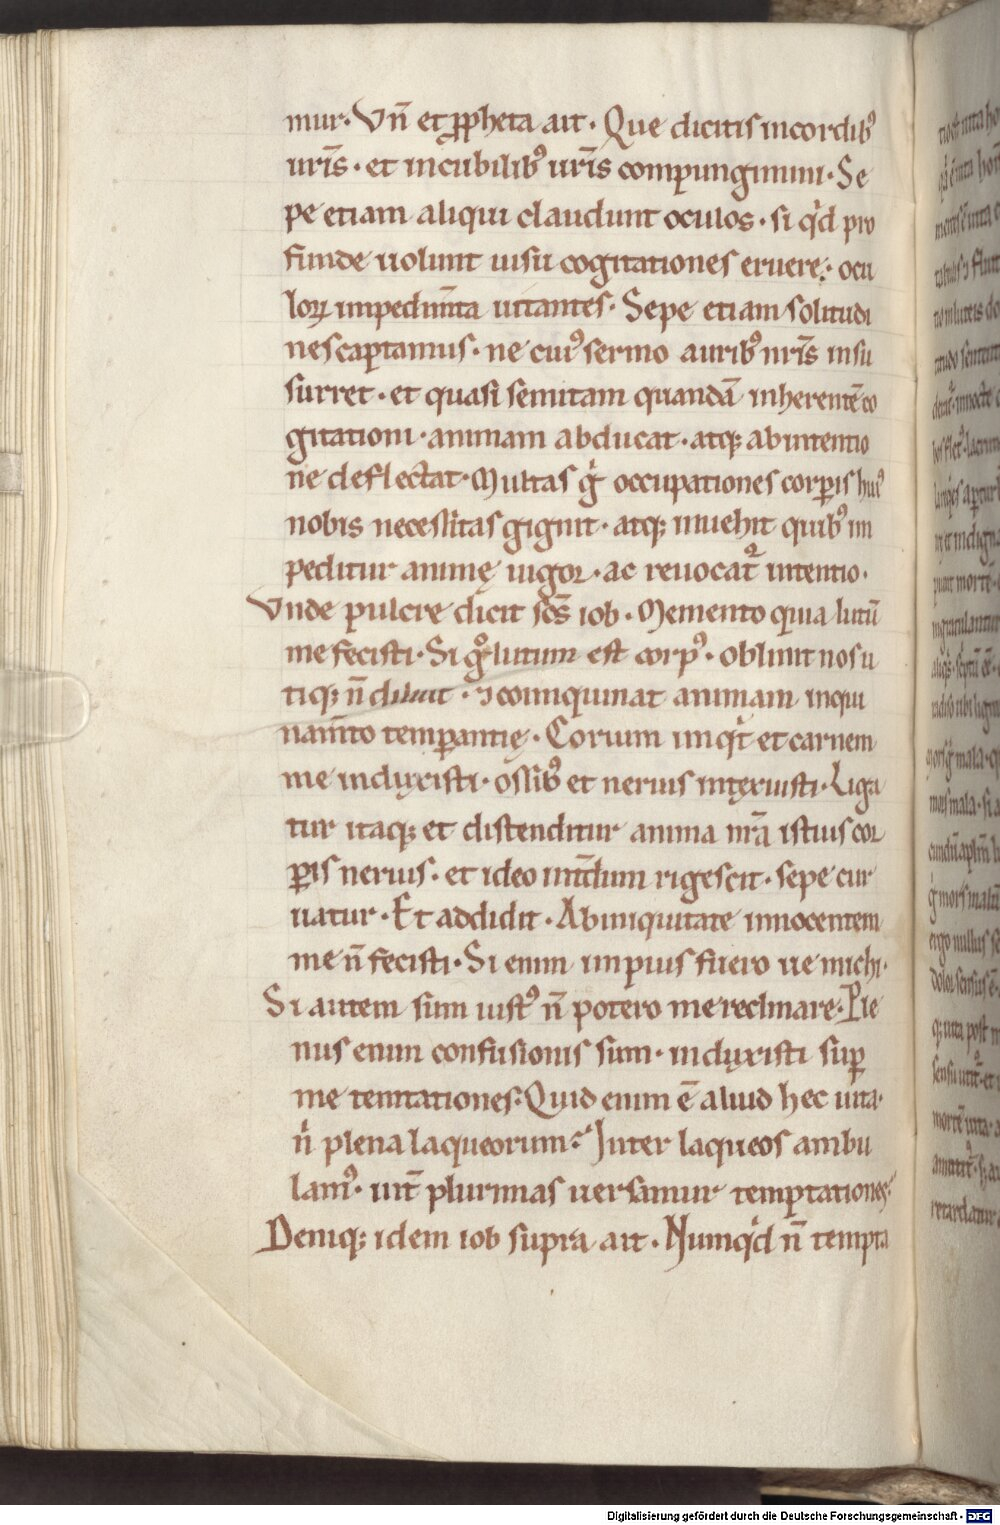 mur. Vn̄ et ꝓpheta ait. Que dicitis in cordibꝰ
ur̄is. et in cubilibꝰ ur̄is compungimini. Se
pe etiam aliqui claudunt oculos. si qͥd pro
funde uolunt uisu cogitationes eruere. ocu
loꝝ impedim̄ta uitantes. Sepe etiam solitudi
nes captamus. ne cuiꝰ sermo auribꝰ nr̄is insu
surret. et quasi semitam quandā inherentē co
gitationi. animam abducat. atqꝫ ab intentio
ne deflectat. Multas gͥ occupationes corꝑis huiꝰ
nobis necessitas gignit. atqꝫ inuehit quibꝰ im
peditur animę uigor. ac reuocat᷑ intentio.
Vnde pulcre dicit sc̄s iob. Memento quia lutū
me fecisti. Si gͦ lutum est corpꝰ. oblinit nos u
tiqꝫ n̄ diluit. ⁊ coinquinat animam inqui
nam̄to temꝑantię. Corium inqͥt et carnem
me induxisti. ossibꝰ et neruis intexuisti. Liga
tur itaqꝫ et distenditur anima nr̄a istius cor
ꝑis neruis. et ideo int̄dum rigescit. sepe cur
uatur. Et addidit. Ab iniquitate innocentem
me n̄ fecisti. Si enim impius fuero ue michi.
Si autem sim iustꝰ n̄ potero me reclinare. Ple
nus enim confusionis sum. induxisti suꝑ
me temtationes. Quid enim ē aliud hec uita.
nͥ plena laqueorum. Inter laqueos ambu
lamꝰ. int̄ plurimas uersamur temptationes.
Deniqꝫ idem iob supra ait. Numqͥd n̄ tempta
Digitalisierung gefördert durch die Deutsche Forschungsgemeinschaft - DFG